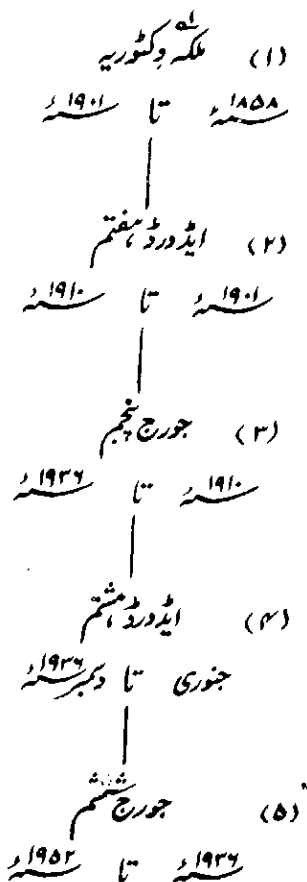 (۱) ملکہ وکٹوریہ لہ
۱۸۵۸ء تا ۱۹۰۱ء
(۲) ایڈورڈ ہفتم
۱۹۰۱ء تا ۱۹۱۰ء
(۳) جورج پنجم
۱۹۱۰ء تا ۱۹۳۶ء
(۴) ایڈورڈ ہشتم
جنوری تا دسمبر ۱۹۳۶ء
(۵) جورج ششم
۱۹۳۶ء تا ۱۹۵۲ء